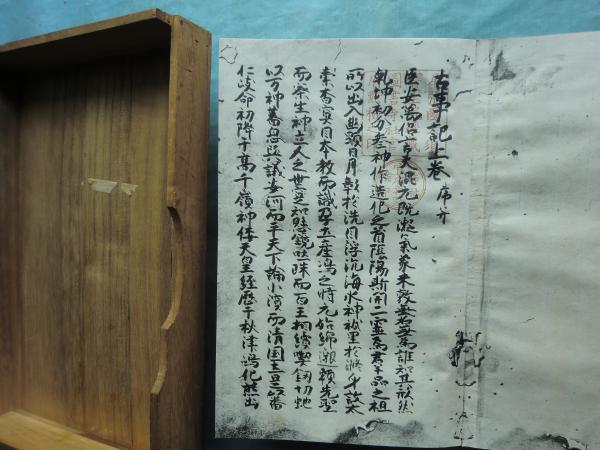 古事記上卷 序并
臣安萬侶言夫混元既凝氣象未效無名無爲誰知其形然
乾坤初分參神作造化之首陰陽斯開二靈爲群品之祖
所以出入幽顯日月彰於洗目浮沉海水神祇呈於滌身故太
素杳冥因本教而識孕土產嶋之時元始綿邈頼先聖
而察生神立人之世寔知懸鏡吐珠而百王相續喫釼切蛇
以万神蕃息與議安河而平天下論小濱而清国土是以番
仁岐命初降于高千嶺神倭天皇經歷于秋津嶋化熊出